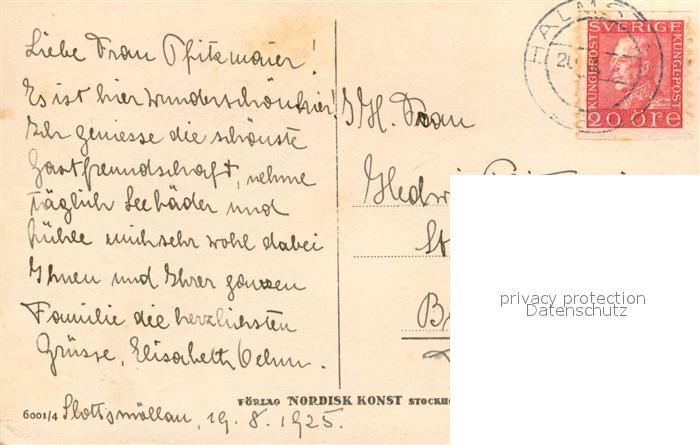 Liebe Frau Pfitzmaier!
Es ist hier wunderschön hier!
Ich geniesse die schönste
Gastfreundschaft, nehme
täglich Seebäder und
fühle mich sehr wohl dabei
Ihnen und Ihrer ganzen
Familie die herzlichsten
Grüsse, Elisabeth
6001/4 Slottsmöllan, 19. 8. 1925.
FÖRLAG NORDISK KONST
HALMS
20
SVERIGE
KUNGL·POST
KUNGL·POST
20 ÖRE
Frau
privacy protection
Datenschutz